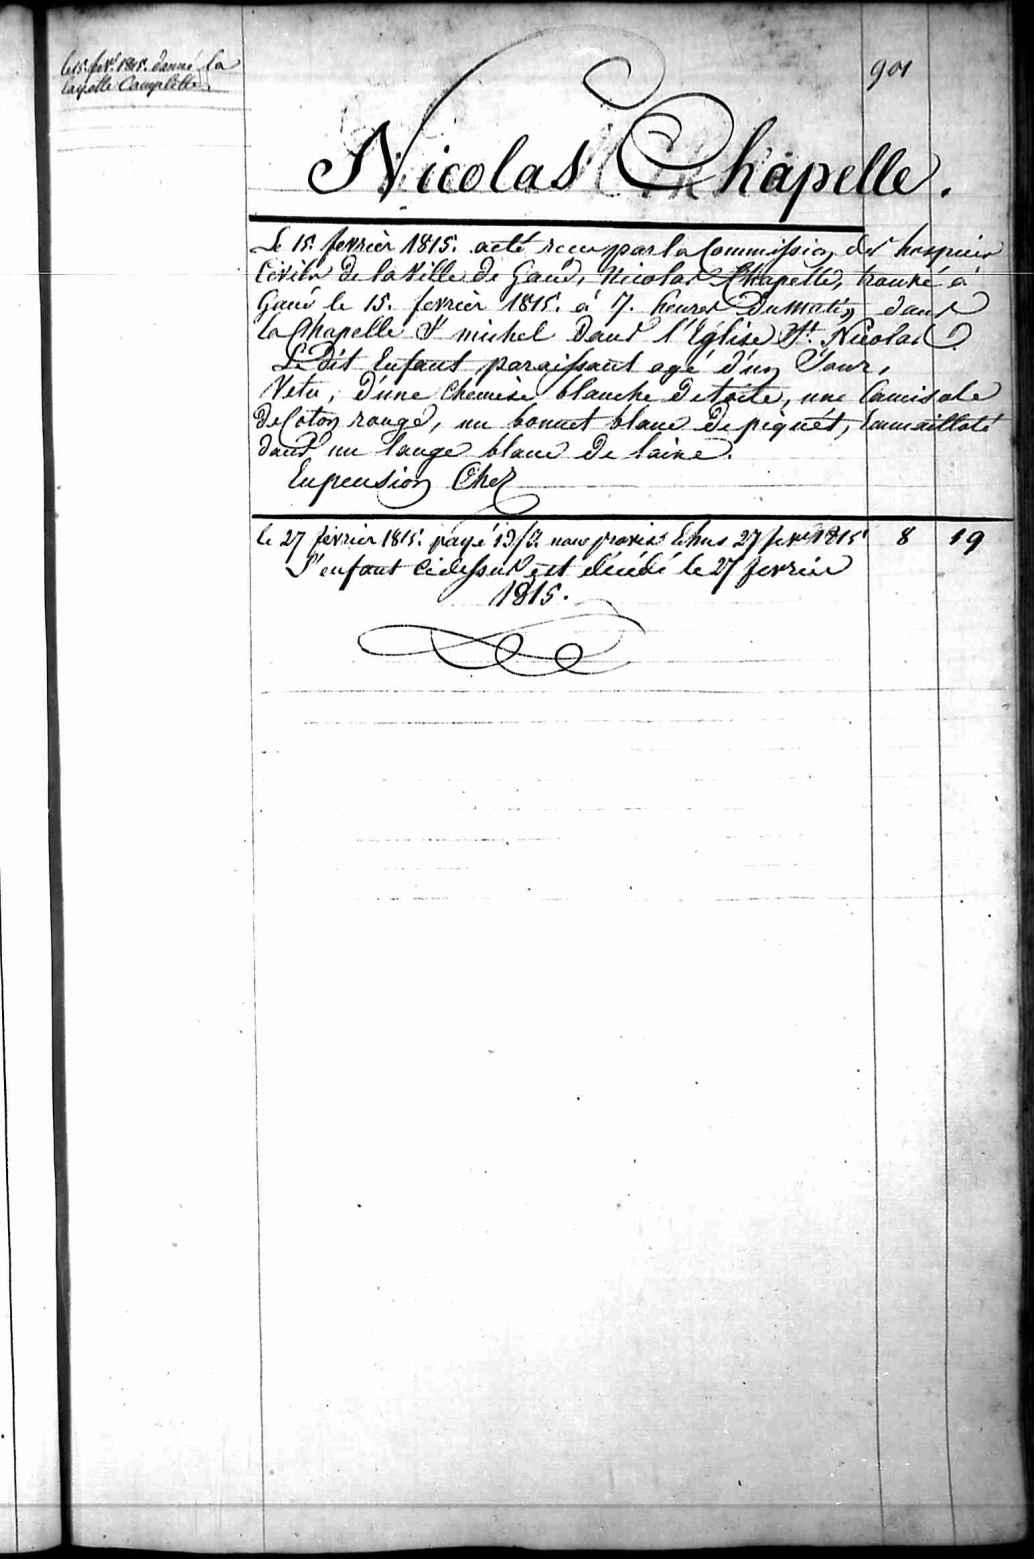 le 15. fevr. 1815. donné la
layette Complette.
901
Nicolas Chapelle.
Le 15. fevrièr 1815. a eté recu par la Commission des hospices
Civils de la Ville de Gand, Nicolas Chapelle, trouvé à
Gand le 15. fevrièr 1815. à 7. heures Du Matin dans
la Chapelle St michel dans l'Eglise St. Nicolas
Le Dit Enfant paraissant agé d'un Jour,
Vetu, d'une chemise blanche De toile, une Camisole
De Coton rouge, un bonnet blanc De piquét, Emmailloté
dans un lange blanc De laine.
En pension Chez
le 27 fevrier 1815. payé 27 fevr 1815 8 19
L'enfant cidessus est décédé le 27 fevrier
1815.